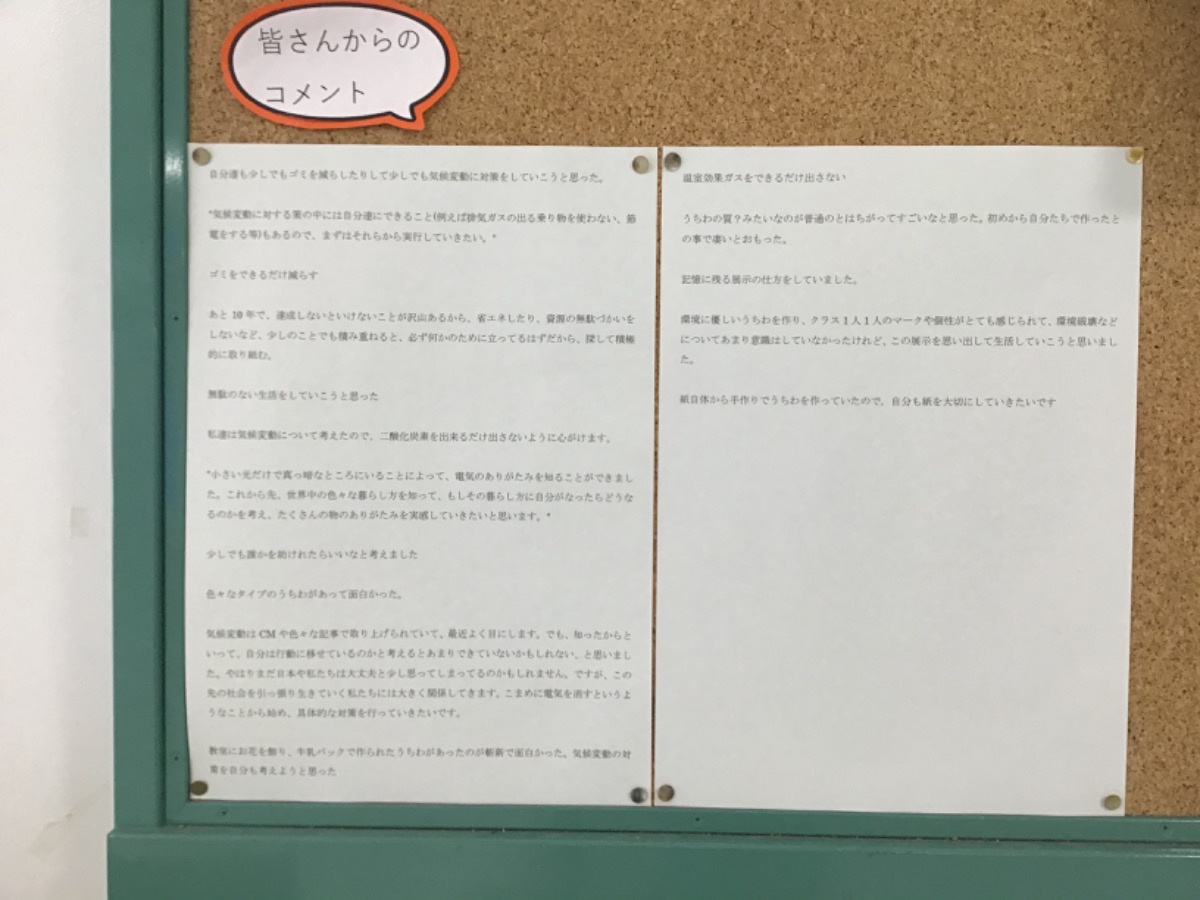 皆さんからの
コメント
自分達も少しでもゴミを減らしたりして少しでも気候変動に対策をしていこうと思った。
"気候変動に対する策の中には自分達にできること(例えば排気ガスの出る乗り物を使わない、節
電をする等)もあるので、まずはそれらから実行していきたい。"
ゴミをできるだけ減らす
あと 10 年で、達成しないといけないことが沢山あるから、省エネしたり、資源の無駄づかいを
しないなど、少しのことでも積み重ねると、必ず何かのために立ってるはずだから、探して積極
的に取り組む。
無駄のない生活をしていこうと思った
私達は気候変動について考えたので、二酸化炭素を出来るだけ出さないように心がけます。
"小さい光だけで真っ暗なところにいることによって、電気のありがたみを知ることができまし
た。これから先、世界中の色々な暮らし方を知って、もしその暮らし方に自分がなったらどうな
るのかを考え、たくさんの物のありがたみを実感していきたいと思います。"
少しでも誰かを助けれたらいいなと考えました
色々なタイプのうちわがあって面白かった。
気候変動は CM や色々な記事で取り上げられていて、最近よく目にします。でも、知ったからと
いって、自分は行動に移せているのかと考えるとあまりできていないかもしれない、と思いまし
た。やはりまだ日本や私たちは大丈夫と少し思ってしまってるのかもしれません。ですが、この
先の社会を引っ張り生きていく私たちには大きく関係してきます。こまめに電気を消すというよ
うなことから始め、具体的な対策を行っていきたいです。
教室にお花を飾り、牛乳パックで作られたうちわがあったのが斬新で面白かった。気候変動の対
策を自分も考えようと思った
温室効果ガスをできるだけ出さない
うちわの質？みたいなのが普通のとはちがってすごいなと思った。初めから自分たちで作ったと
の事で凄いとおもった。
記憶に残る展示の仕方をしていました。
環境に優しいうちわを作り、クラス１人１人のマークや個性がとても感じられて、環境破壊など
についてあまり意識はしていなかったけれど、この展示を思い出して生活していこうと思いまし
た。
紙自体から手作りでうちわを作っていたので、自分も紙を大切にしていきたいです